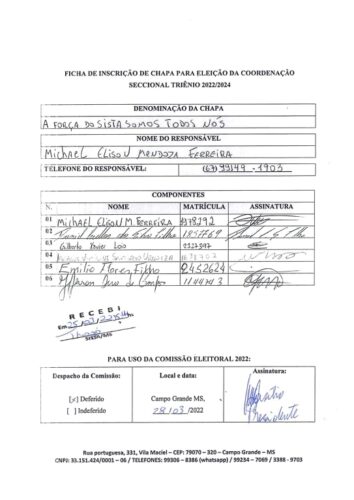 FICHA DE INSCRIÇÃO DE CHAPA PARA ELEIÇÃO DA COORDENAÇÃO
SECCIONAL TRIÊNIO 2022/2024
DENOMINAÇÃO DA CHAPA
A FORÇA DO SISTA SOMOS TODOS NÓS
NOME DO RESPONSÁVEL
Michael Elison Mendoza Ferreira
TELEFONE DO RESPONSÁVEL: (67) 99149-1903
COMPONENTES
N. NOME MATRÍCULA ASSINATURA
01 Michael Elison M. Ferreira
02 Filho
03 Gilberto Xavier
04
05 Emilio Flores Filho 2452624
06 Jefferson 1144703
RECEBI
Em
SISTA/MS
PARA USO DA COMISSÃO ELEITORAL 2022:
Despacho da Comissão: Local e data: Assinatura:
[x] Deferido Campo Grande MS,
[ ] Indeferido 28/03/2022
Presidente
Rua portuguesa, 331, Vila Maciel – CEP: 79070 – 320 – Campo Grande – MS
CNPJ: 33.151.424/0001 – 06 / TELEFONES: 99306 – 8386 (whatsapp) / 99234 – 7069 / 3388 - 9703